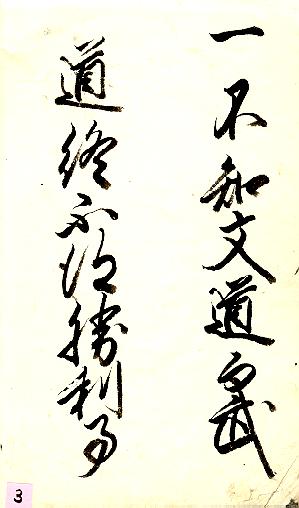 一不知文道而武
道終不得勝利事
3